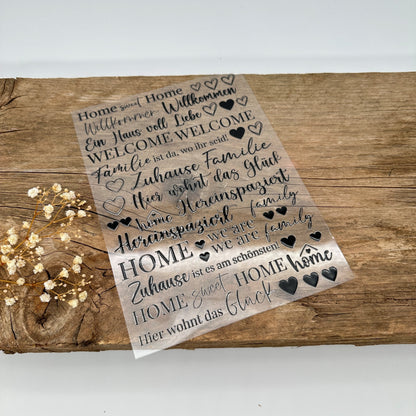 Home sweet Home
Willkommen Willkommen
Ein Haus voll Liebe
WELCOME WELCOME
Familie ist da, wo ihr seid!
Zuhause Familie
Hier wohnt das Glück
home Hereinspaziert
Hereinspaziert family
HOME we are
we are family
Zuhause ist es am schönsten!
HOME sweet HOME home
Hier wohnt das Glück